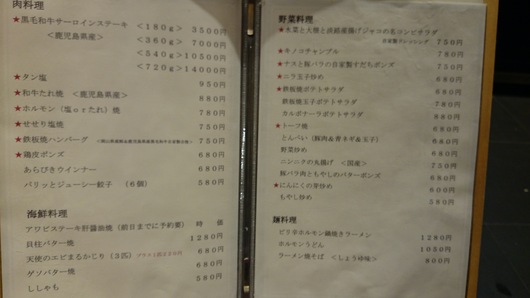 肉料理
★黒毛和牛サーロインステーキ <180g> 3500円
<鹿児島県産> <360g> 7000円
<540g>10500円
<720g>14000円
★タン塩 950円
★和牛たれ焼 <鹿児島県産> 880円
★ホルモン（塩orたれ）焼 780円
★せせり塩焼 750円
★鉄板焼ハンバーグ 750円
★鶏皮ポンズ 680円
あらびきウインナー 680円
パリッとジューシー餃子 （6個） 580円
海鮮料理
アワビステーキ肝醤油焼（前日までに予約要） 時 価
貝柱バター焼 1280円
天使のエビまるかじり（3匹） 680円
ゲソバター焼 680円
ししゃも 580円
野菜料理
自家製ドレッシング 750円
★キノコチャンプル 780円
★ナスと豚バラの自家製すだちポンズ 750円
★ニラ玉子炒め 680円
★鉄板焼ポテトサラダ 680円
鉄板焼玉子ポテトサラダ
カルボナーラポテトサラダ
★トーフ焼 680円
とんぺい（豚肉&青ネギ&玉子） 680円
野菜炒め 680円
ニンニクの丸揚げ <国産> 750円
豚バラ肉ともやしのバターポンズ 680円
★にんにくの芽炒め
もやし炒め 580円
麺料理
ピリ辛ホルモン鍋焼きラーメン 1280円
ホルモンうどん 1050円
ラーメン焼そば <しょうゆ味> 800円